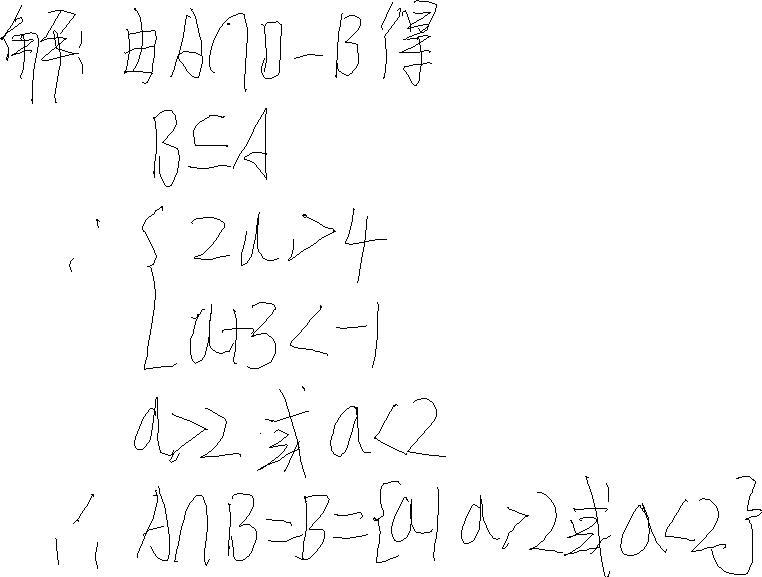 解: 由A∩B=B得
B⊆A
∴ { 2a>4
a+3<-1
a>2 或 a<2
∴ A∩B=B={a|a>2或a<2}